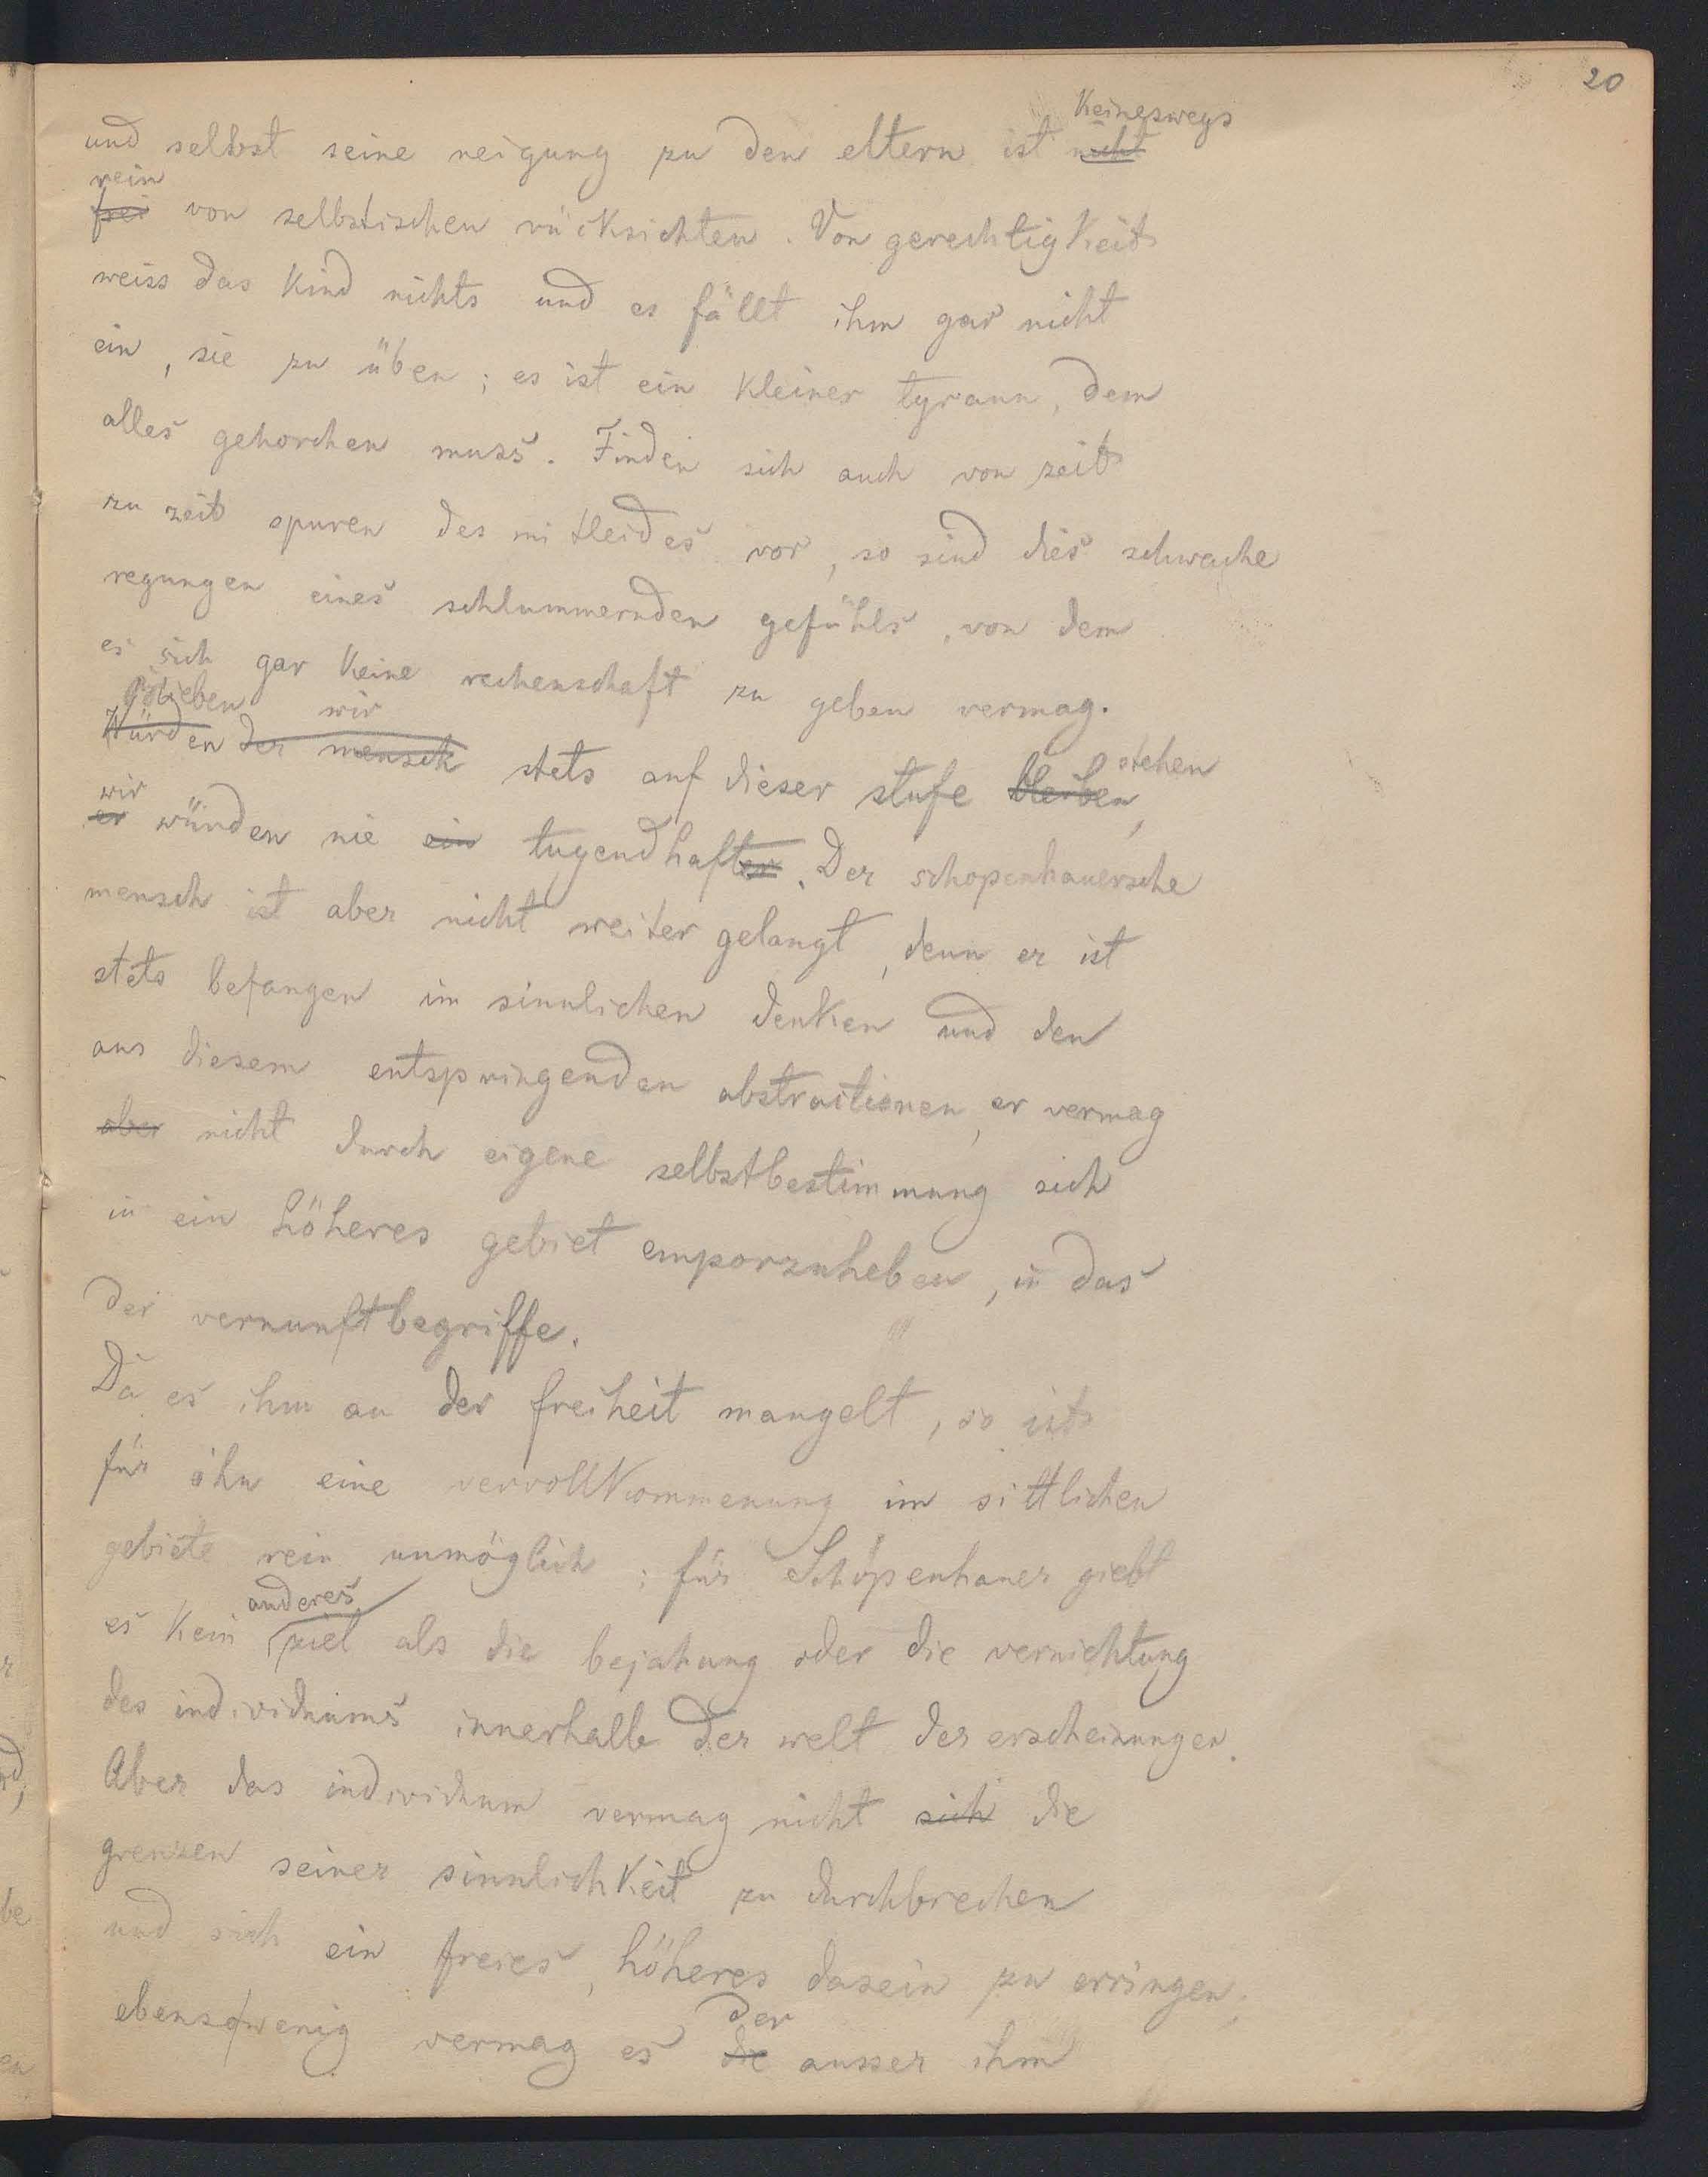 20
keineswegs
und selbst seine neigung zu den eltern ist nicht
rein
frei von selbstischen rücksichten. Von gerechtigkeit
weiss das kind nichts und es fällt ihm gar nicht
ein, sie zu üben; es ist ein kleiner tyrann, dem
alles gehorchen muss. Finden sich auch von zeit
zu zeit spuren des mitleides vor, so sind dies schwache
regungen eines schlummernden gefühls, von dem
es sich gar keine rechenschaft zu geben vermag.
Blieben wir stehen
Würden der mensch stets auf dieser stufe bleiben,
wir
er würden nie ein tugendhafter. Der schopenhauersche
mensch ist aber nicht weiter gelangt, denn er ist
stets befangen im sinnlichen denken und den
aus diesem entspringenden abstractionen, er vermag
aber nicht durch eigene selbstbestimmung sich
in ein höheres gebiet emporzuheben, in das
der vernunftbegriffe.
Da es ihm an der freiheit mangelt, so ist
für ihn eine vervollkommenung im sittlichen
gebiete rein unmöglich; für Schopenhauer giebt
anderes
es kein ziel als die bejahung oder die vernichtung
des individuums innerhalb der welt der erscheinungen.
Aber das individuum vermag nicht sich die
grenzen seiner sinnlichkeit zu durchbrechen
und sich ein freies, höheres dasein zu erringen;
der
ebensowenig vermag es die ausser ihm